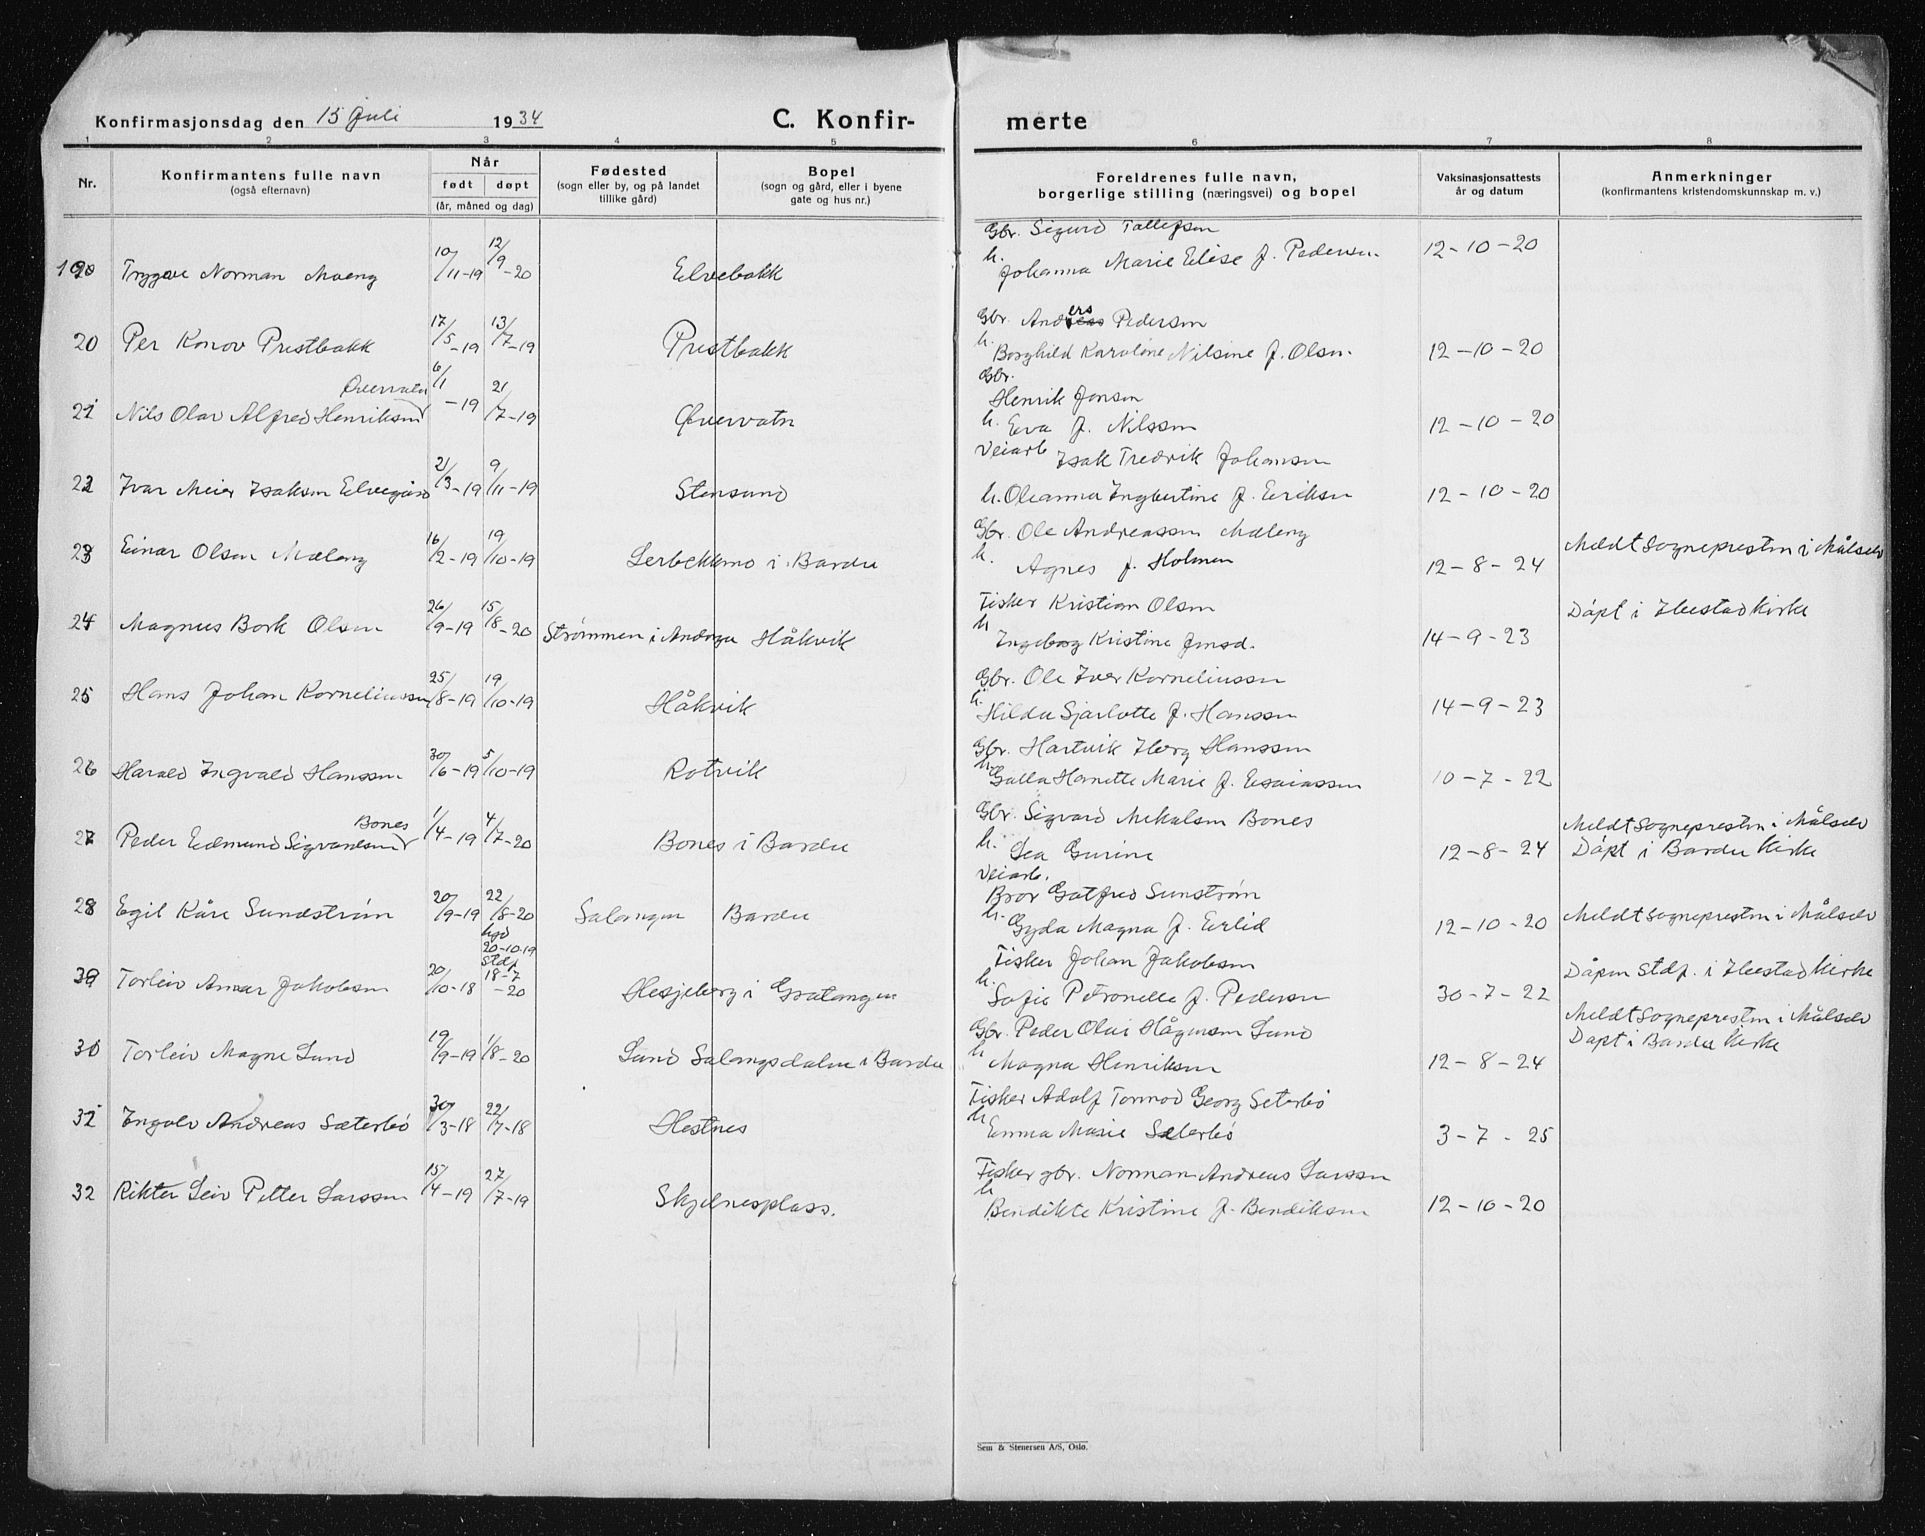 Konfirmasjonsdag den 15 Juli 1934 C. Konfir- merte
1 2 3 4 5 6 7 8
Nr. Konfirmantens fulle navn (også efternavn) Når født døpt (år, måned og dag) Fødested (sogn eller by, og på landet tillike gård) Bopel (sogn og gård, eller i byene gate og hus nr.) Foreldrenes fulle navn, borgerlige stilling (næringsvei) og bopel Vaksinasjonsattests år og datum Anmerkninger (konfirmantens kristendomskunnskap m. v.)
Gbr. Sigurd Tollefsen
Trygve Norman Moeng 10/11-19 12/9-20 Elvebakk h. Johanna Marie Elise f. Pedersen. 12-10-20
Gbr. Anders Pedersen
20 Per Konov Prestbakk 17/5-19 13/7-19 Prestbakk h. Borghild Karoline Nilsine f. Olsen. 12-10-20
Øvervatn Gbr. Henrik Jonsen
21 Nils Olav Alfred Henriksen 6/1-19 21/7-19 Øvervatn h. Eva f. Nilssen 12-10-20
Veiarb Isak Fredrik Johansen
22 Ivar Meier Isaksen Elvegård 21/3-19 9/11-19 Stensund h. Oleanna Ingbertine f. Eriksen 12-10-20
Gbr. Ole Andreassen Mæleng
23 Einar Olsen Mæleng 16/2-19 19/10-19 Lerbekkmo i Bardu h. Agnes f. Holmen 12-8-24 Meldt Sognepresten i Målselv
Fisker Kristian Olsen
24 Magnus Bork Olsen 26/9-19 15/8-20 Strømmen i Andørja Håkvik h Ingeborg Kristine Jensd. 14-9-23 Døpt i Ibestad Kirke
Gbr. Ole Iver Korneliussen
25 Hans Johan Korneliussen 25/8-19 19/10-19 Håkvik h. Hilda Sjarlotte f. Hanssen 14-9-23
Gbr. Hartvik Iberg Hanssen
26 Harald Ingvald Hanssen 30/6-19 5/10-19 Rotvik h. Galla Hanette Marie f. Esaiassen 10-7-22
Bones Gbr. Sigvard Mikalsen Bones Meldt Sognepresten i Målselv
27 Peder Edmund Sigvardsen 1/4-19 4/7-20 Bones i Bardu h. Lea Gurine 12-8-24 Døpt i Bardu Kirke
Veiarb. Bror Gotfred Sunstrøm
28 Egil Kåre Sundstrøm 20/9-19 22/8-20 Salangen Bardu h. Gyda Magna f. Erlid 12-10-20 Meldt Sognepresten i Målselv
hjd 20-10-19 Fisker Johan Jakobsen
Torleiv Anar Jakobsen 20/10-18 Stdf. 18-7-20 Hesjeberg i Gratangen h. Sofie Petronelle f. Pedersen 30-7-22 Dåpen Stdf. i Ibestad Kirke
Gbr. Peder Olai Hågensen Lund Meldt Sognepresten i Målselv
30 Torleiv Magne Lund 19/9-19 1/8-20 Lund Salangsdalen i Bardu h Magna Henriksen 12-8-24 Døpt i Bardu Kirke
Fisker Adolf Tormod Georg Seterbø
Ingolv Andreas Sæterbø 30/3-18 22/7-18 Hestnes h Emma Marie Sæterbø 3-7-25
Fisker gbr. Norman Andreas Larssen
32 Rikter Leiv Petter Larssen 15/4-19 27/7-19 Skjelnesplass. h Bendikte Kristine f. Bendiksen 12-10-20
Sem & Stenersen A/S, Oslo.